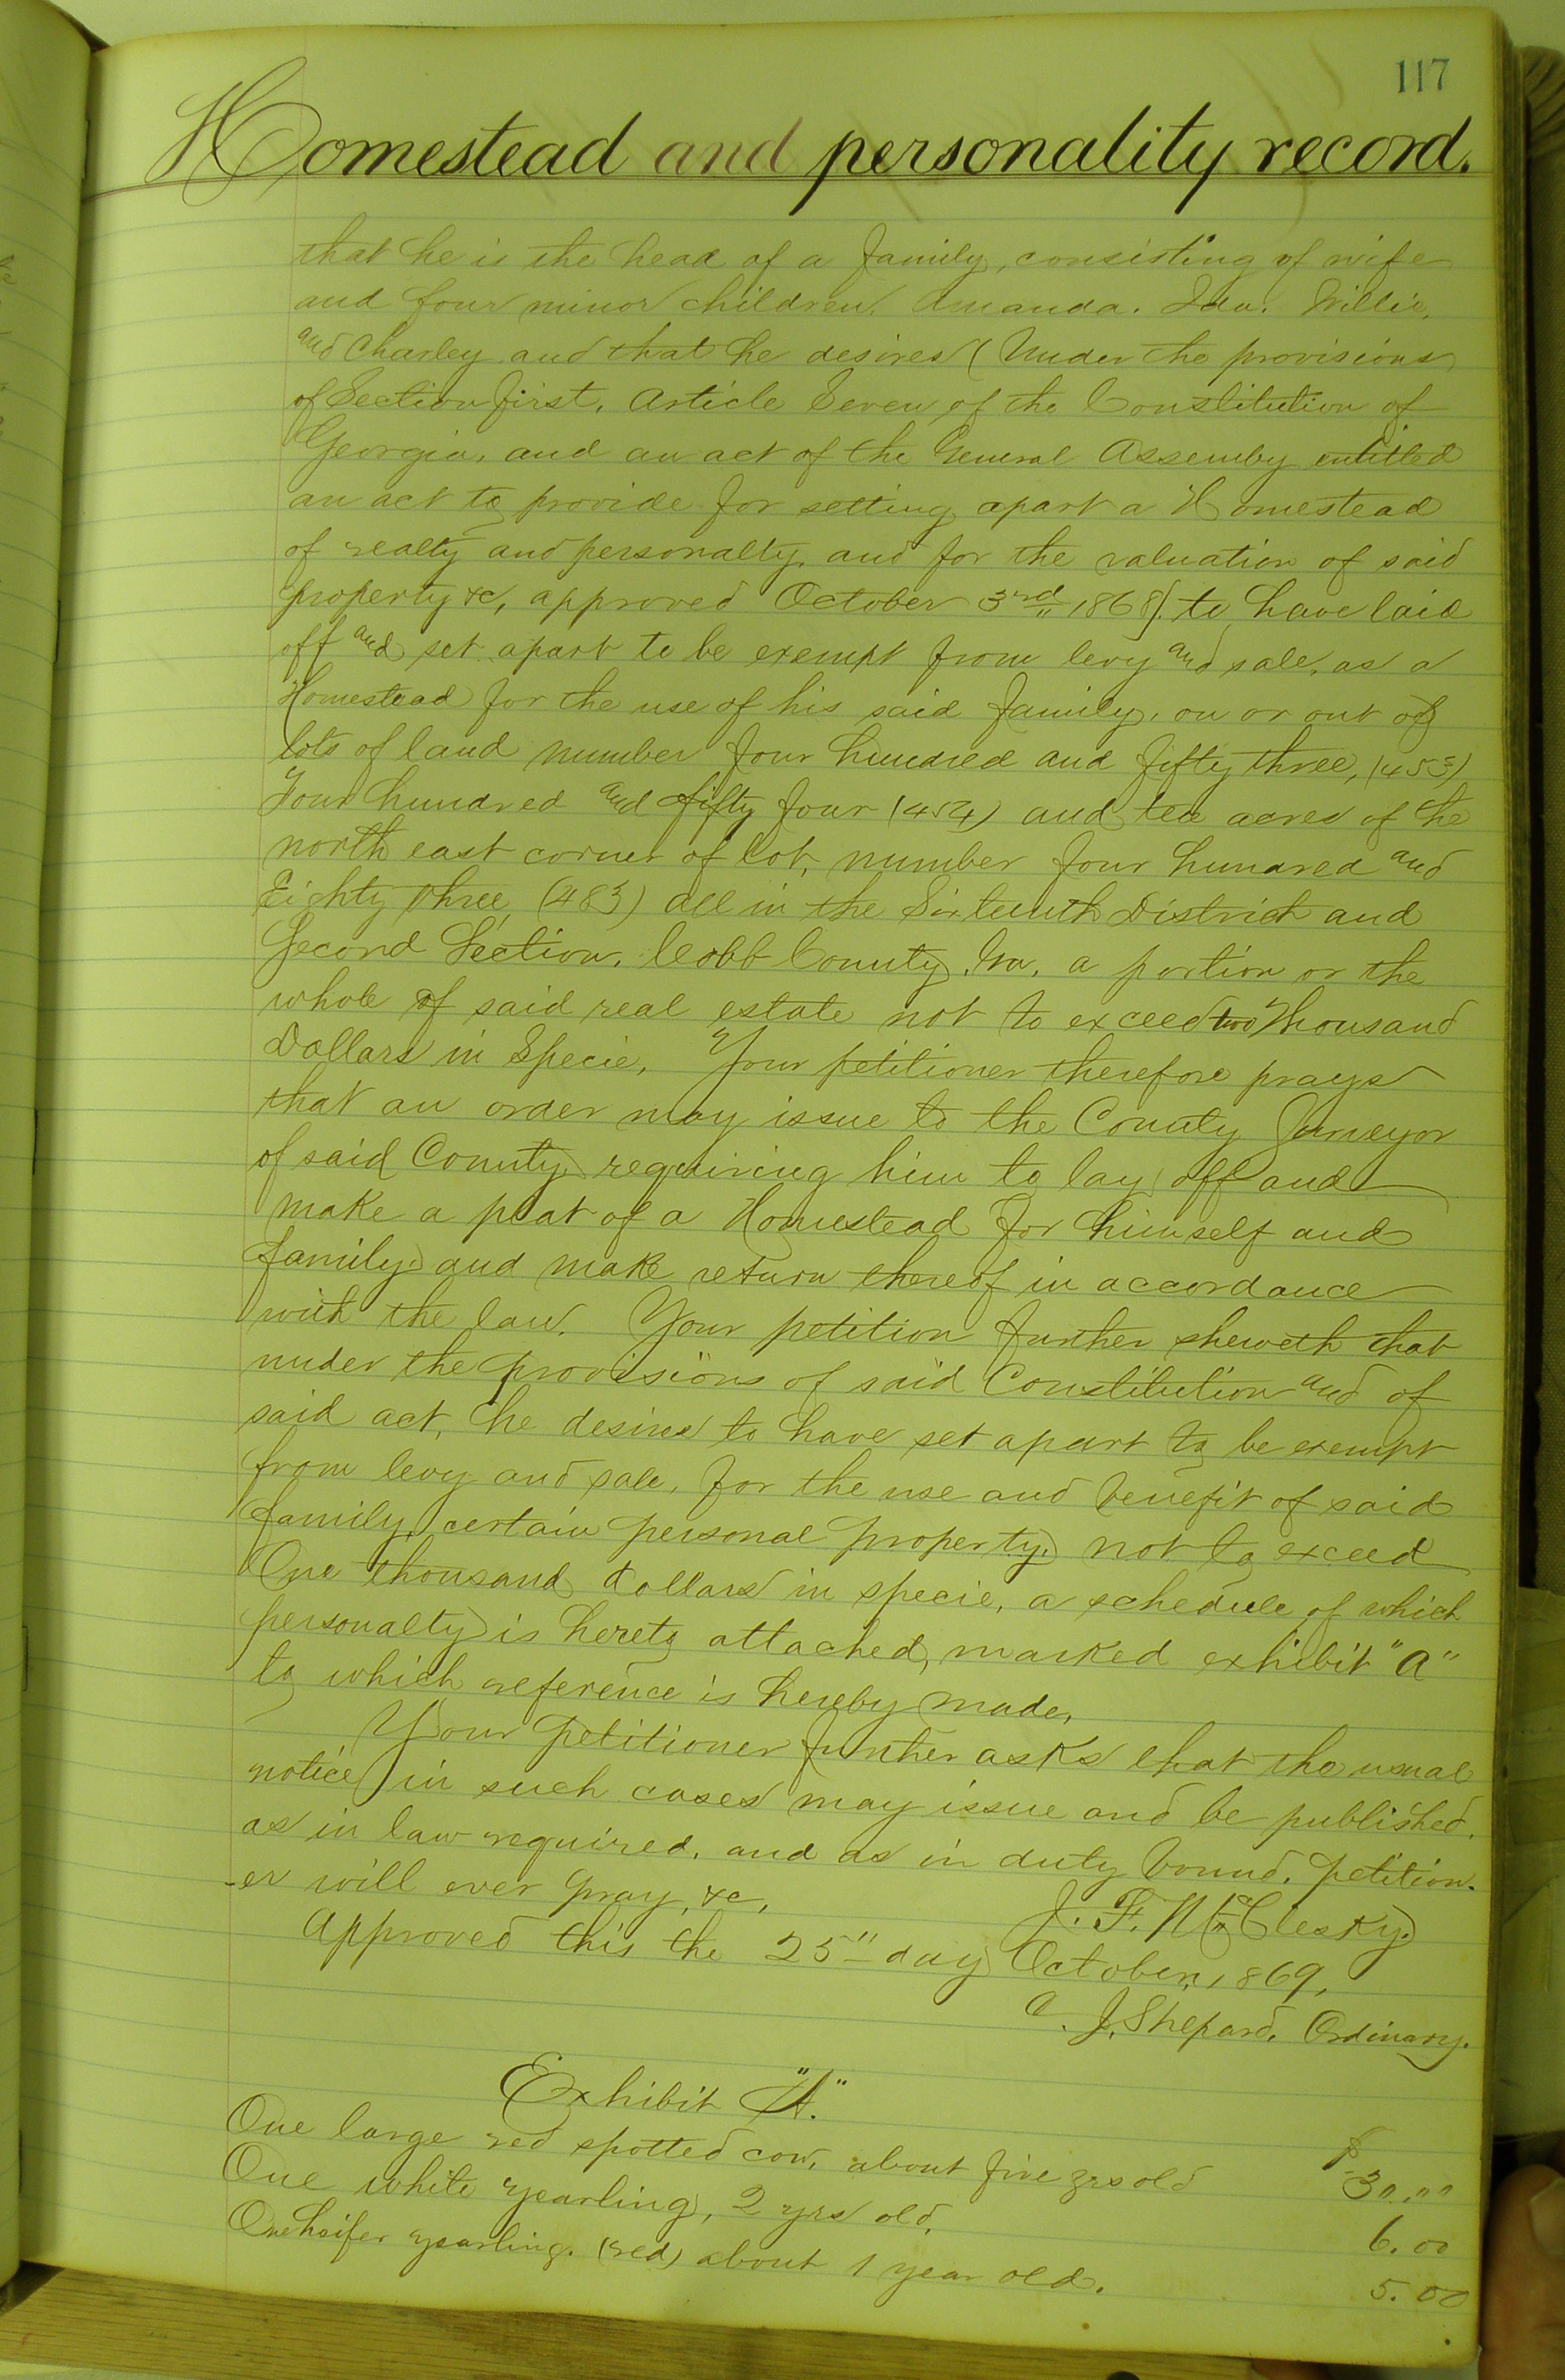 117
Homestead and personality record.
that he is the head of a family, consisting of wife
and four minor children, Amanda. Ida. Willie,
and Charley and that he desires (Under the provisions
of Section first, Article Seven of the Constitution of
Georgia, and an act of the General Assemby entitled
an act to provide for setting apart a Homestead
of realty and personalty, and for the valuation of said
property &c, approved October 3rd 1868). to have laid
off and set apart to be exempt from levy and sale, as a
Homestead for the use of his said family, on or out of
lots of land number four hundred and fifty three, (453)
Four hundred and fifty four (454) and ten acres of the
north east corner of lot, number four hundred and
Eighty three (483) all in the Sixteenth District and
Second Section, Cobb County, Ga, a portion or the
whole of said real estate not to exceed two thousand
Dollars in Specie, Your petitioner therefore prays
that an order may issue to the County Surveyor
of said County requiring him to lay off and
make a plat of a Homestead for himself and
family, and make return thereof in accordance
with the law. Your petition further sheweth that
under the provisions of said Constitution and of
said act, he desires to have set apart to be exempt
from levy and sale, for the use and benefit of said
family, certain personal property, not to exceed
One thousand dollars in specie, a schedule of which
personalty is hereto attached, marked exhibit "A"
to which reference is hereby made,
Your petitioner further asks that the usual
notice in such cases may issue and be published,
as in law required, and as in duty bound, petition-
-er will ever pray, &c,
J. F. McClesky.
Approved this the 25" day October, 1869,
A. J. Shepard, Ordinary.
Exhibit "A."
One large red spotted cow, about five yrs old $30.00
One white yearling, 2 yrs old, 6.00
One heifer yearling. (red) about 1 year old. 5.00